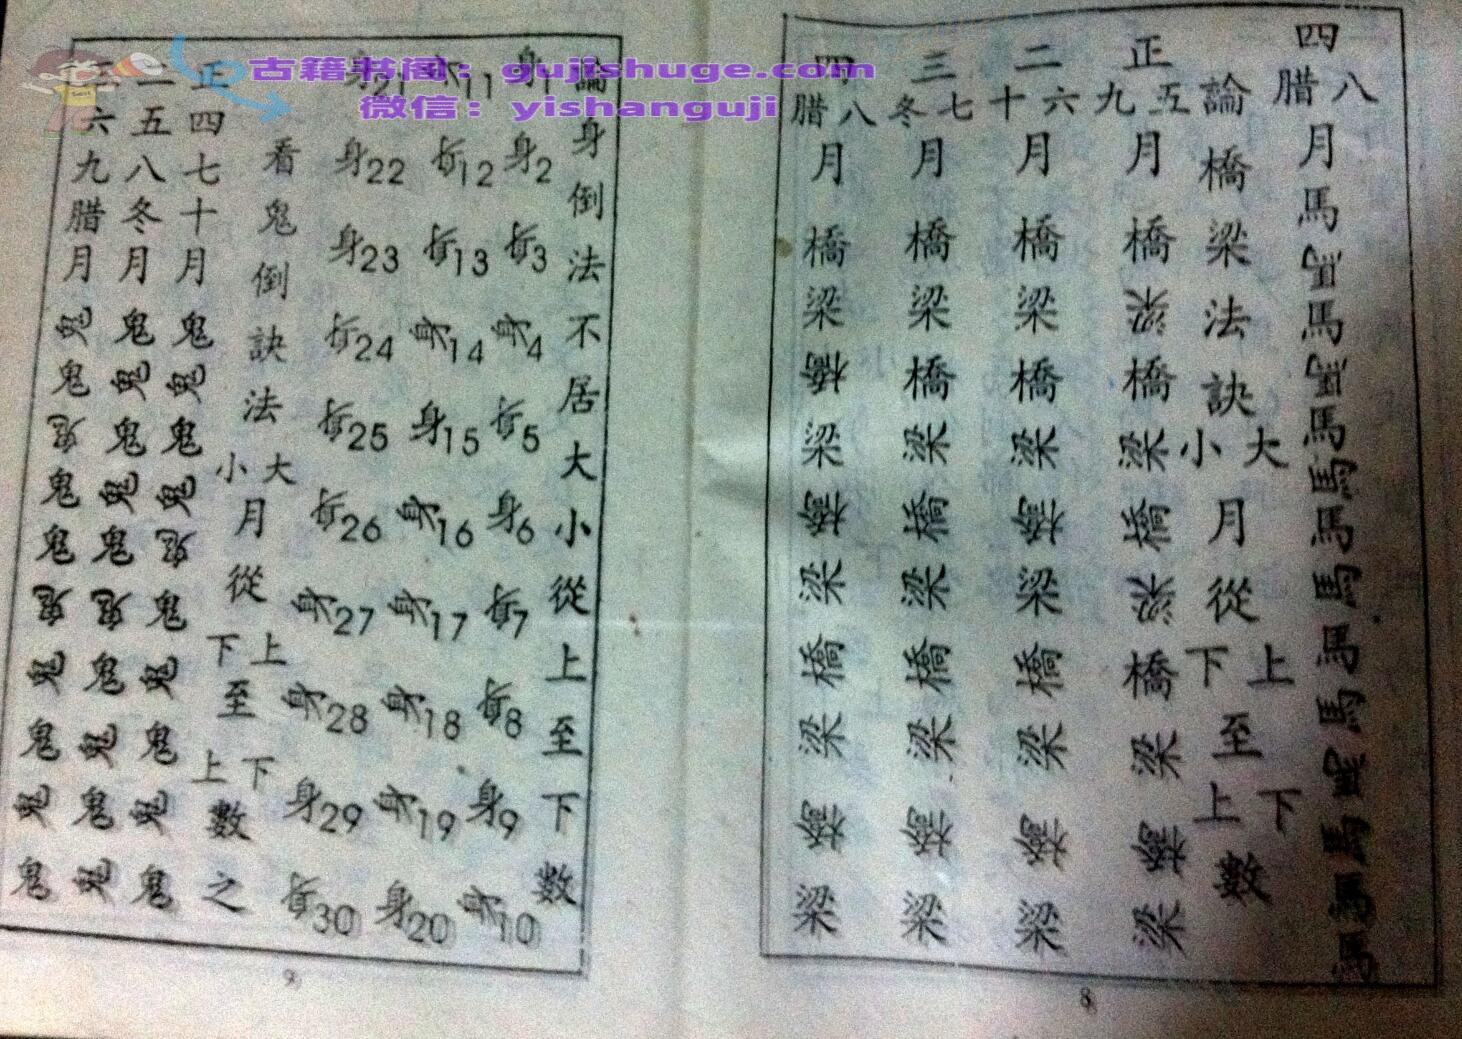 古籍书阁：gujishuge.com
微信：yishanguji
四八腊月馬馬馬馬馬馬馬馬馬馬馬馬馬馬
論橋梁法訣大小月從上下至下上數
正五九月橋梁橋梁橋梁橋梁橋梁
二六十月橋梁橋梁橋梁橋梁橋梁
三七冬月橋梁橋梁橋梁橋梁橋梁
四八腊月橋梁橋梁橋梁橋梁橋梁
8
論身倒法不居大小從上至下數
身1身2身3身4身5身6身7身8身9身10
身11身12身13身14身15身16身17身18身19身20
身21身22身23身24身25身26身27身28身29身30
看鬼倒訣法大小月從上下至下上數之
正四七十月鬼鬼鬼鬼鬼鬼鬼鬼鬼鬼
二五八冬月鬼鬼鬼鬼鬼鬼鬼鬼鬼鬼
三六九腊月鬼鬼鬼鬼鬼鬼鬼鬼鬼鬼
9